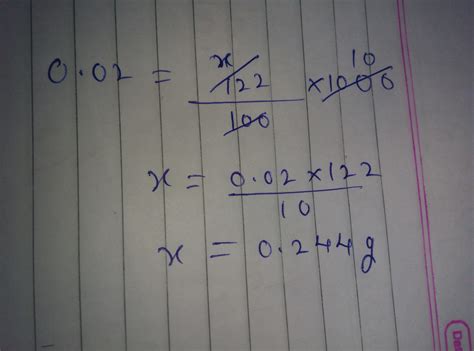 10
0.02 = x/122 × 1000
100
x = 0.02 × 122
10
x = 0.244 g